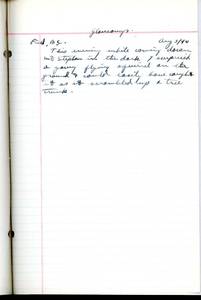 Glaucomys.
Field, B.C. Aug 3/44
This evening while coming down
Mt Stephen in the dark I surprised
a young flying squirrel on the
ground & could easily have caught
it as it scrambled up a tree
trunk.